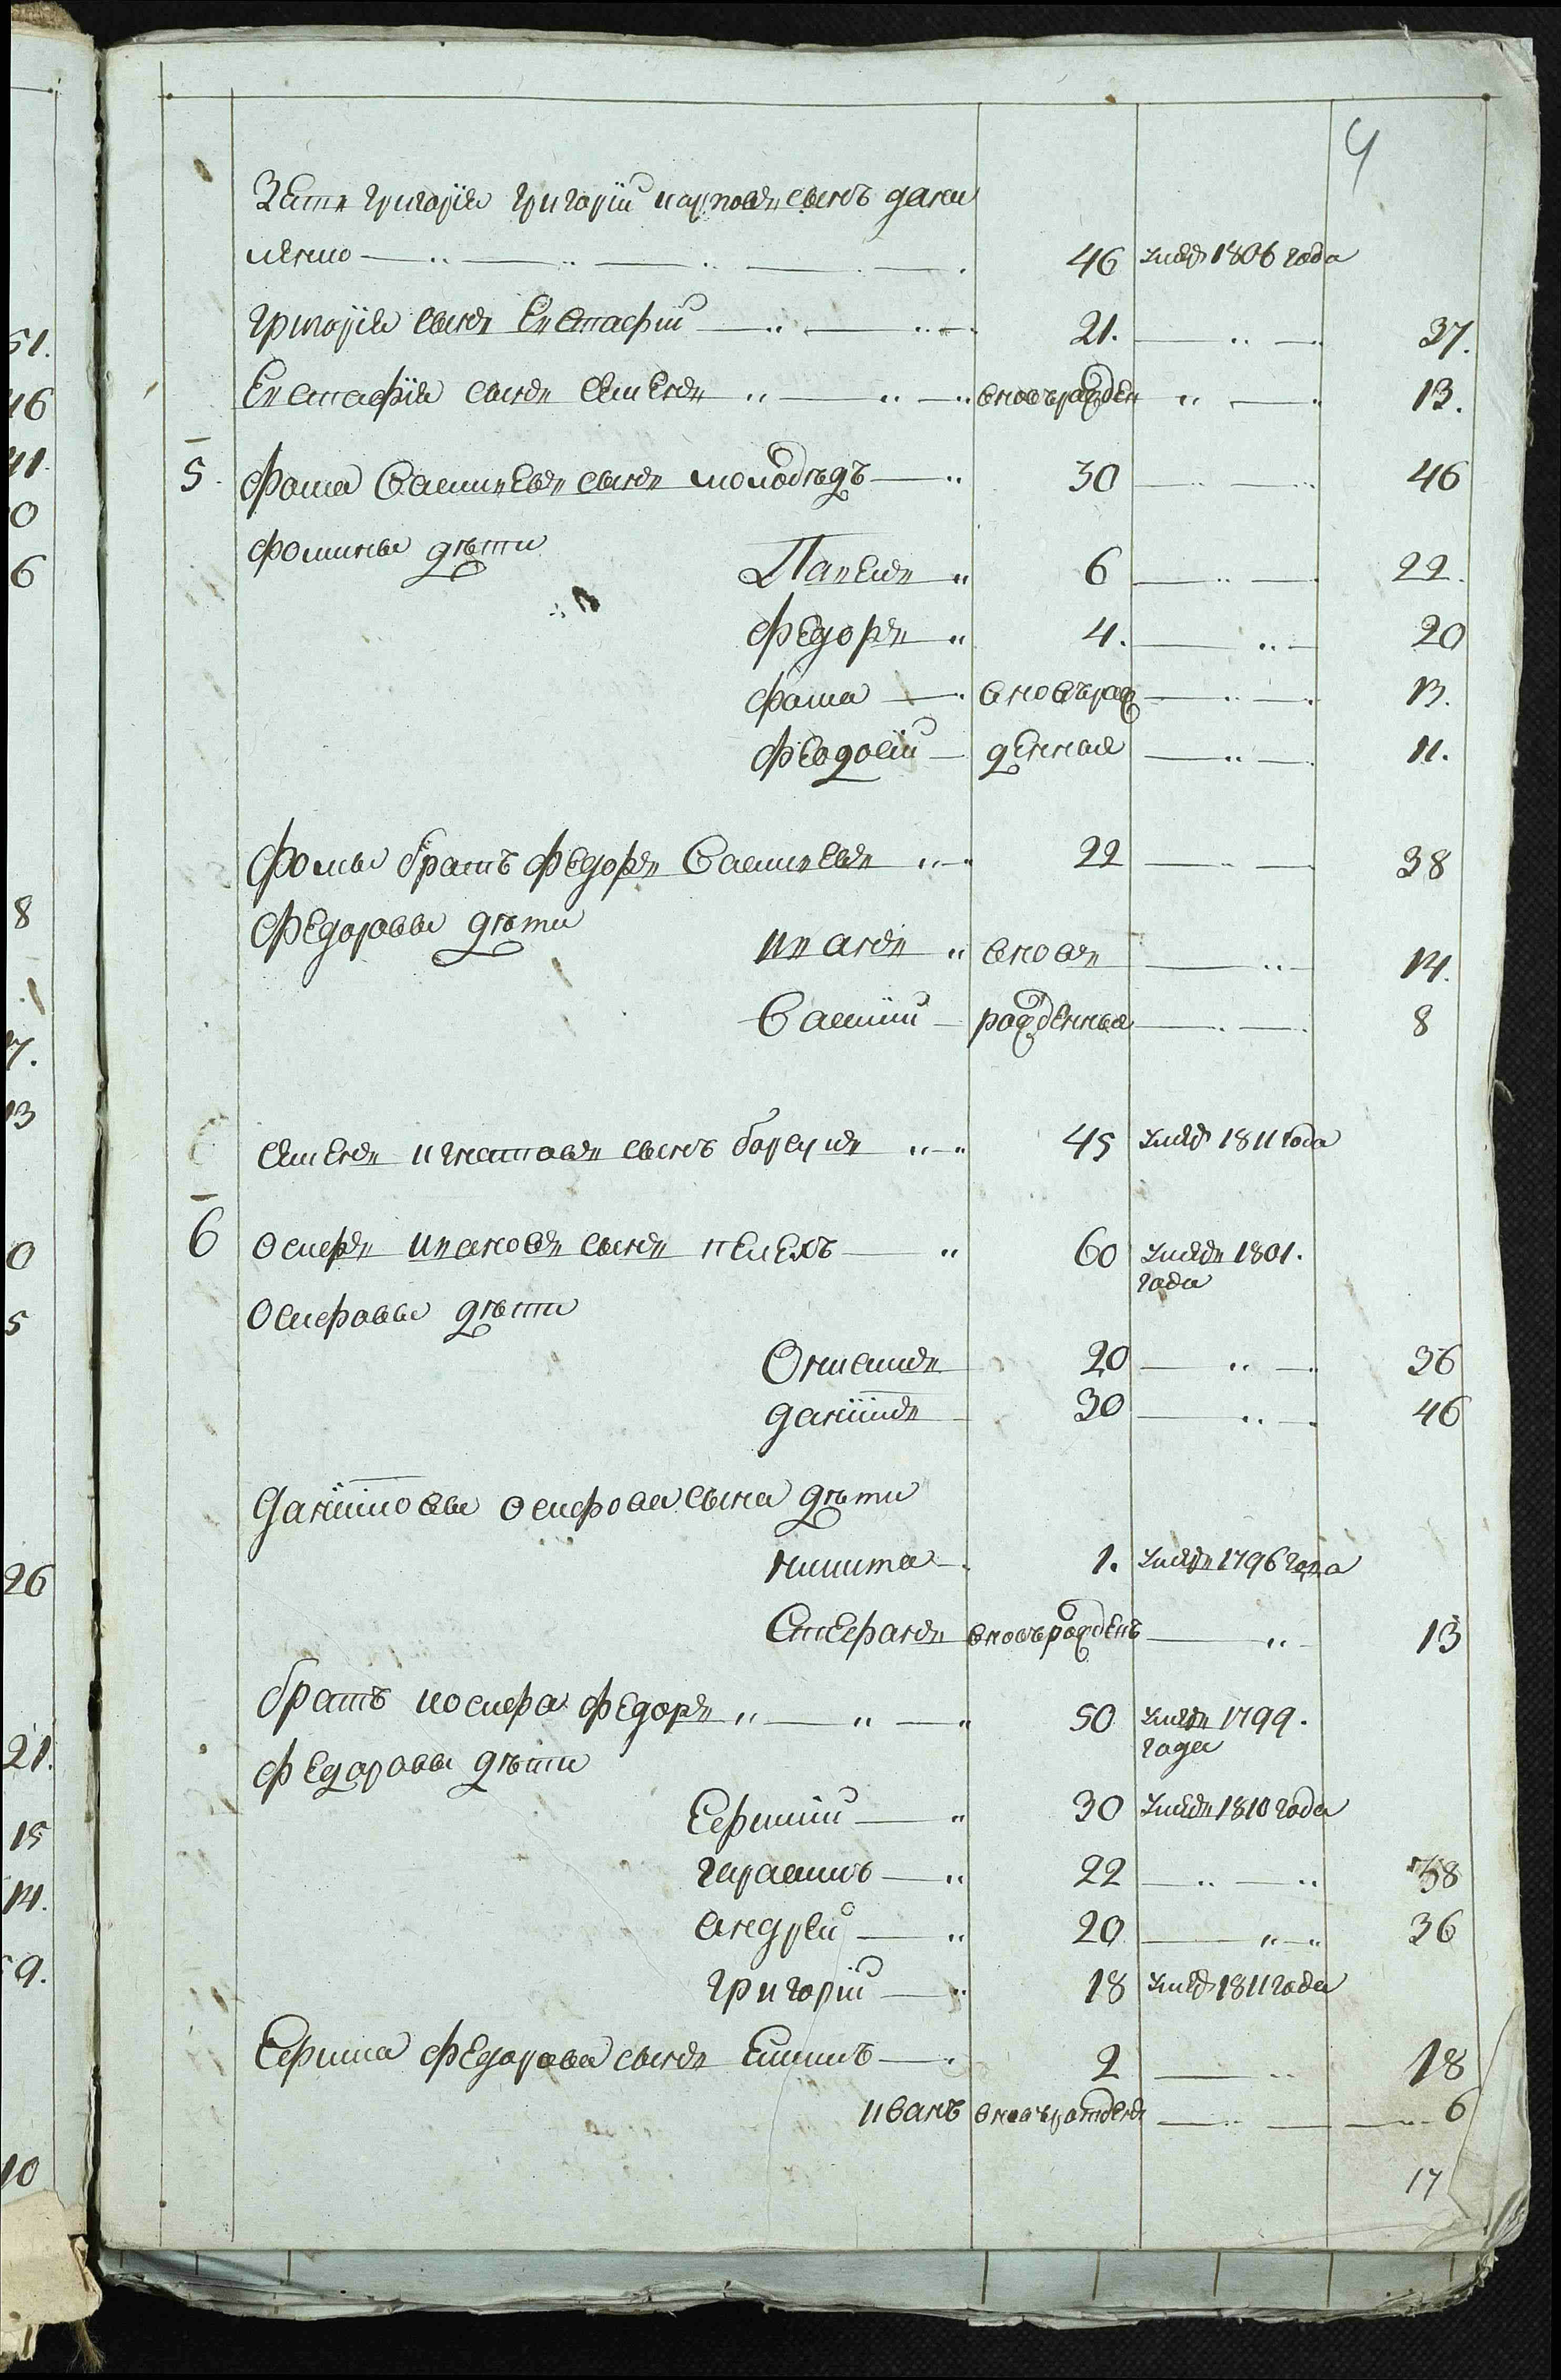 4
Зять григорія григорій карповъ сынъ дани
ленко 46 умеръ 1806 года
григорія сынъ Евстафій 21. 37.
Евстафія сынъ семенъ вновърожден 13.
5. фома Васильевъ сынъ молодъдъ 30 46
фомины дѣти
Павелъ 6 22.
федоръ 4. 20
фома вновърож 13.
феодосій денная 11.
фомы братъ федоръ Васильевъ 22 38
федоровы дѣти
иванъ вновъ 14.
Василій рожденныя 8
семенъ игнатовъ сынъ борсукъ 45 умеръ 1811 года
6 осифъ ивановъ сынъ пелехъ 60 умеръ 1801.
года
Осифовы дѣти
Онисимъ 20 36
данііилъ 30 46
Даниловы осифова сына дѣти
никита 1. умеръ 1796 года
Стефанъ вновърожденъ 13
братъ иосифа федоръ 50 умеръ 1799.
года
федоровы дѣти
Ефимій 30 умеръ 1810 года
герасимъ 22 38
андрей 20 36
григорій 18 умеръ 1811 года
Ефима федорова сынъ Екимъ 2 18
иванъ вновърожденъ 6
17
51.
46
41.
0
6
8
7.
13
0
5
26
21.
15
14.
9.
10